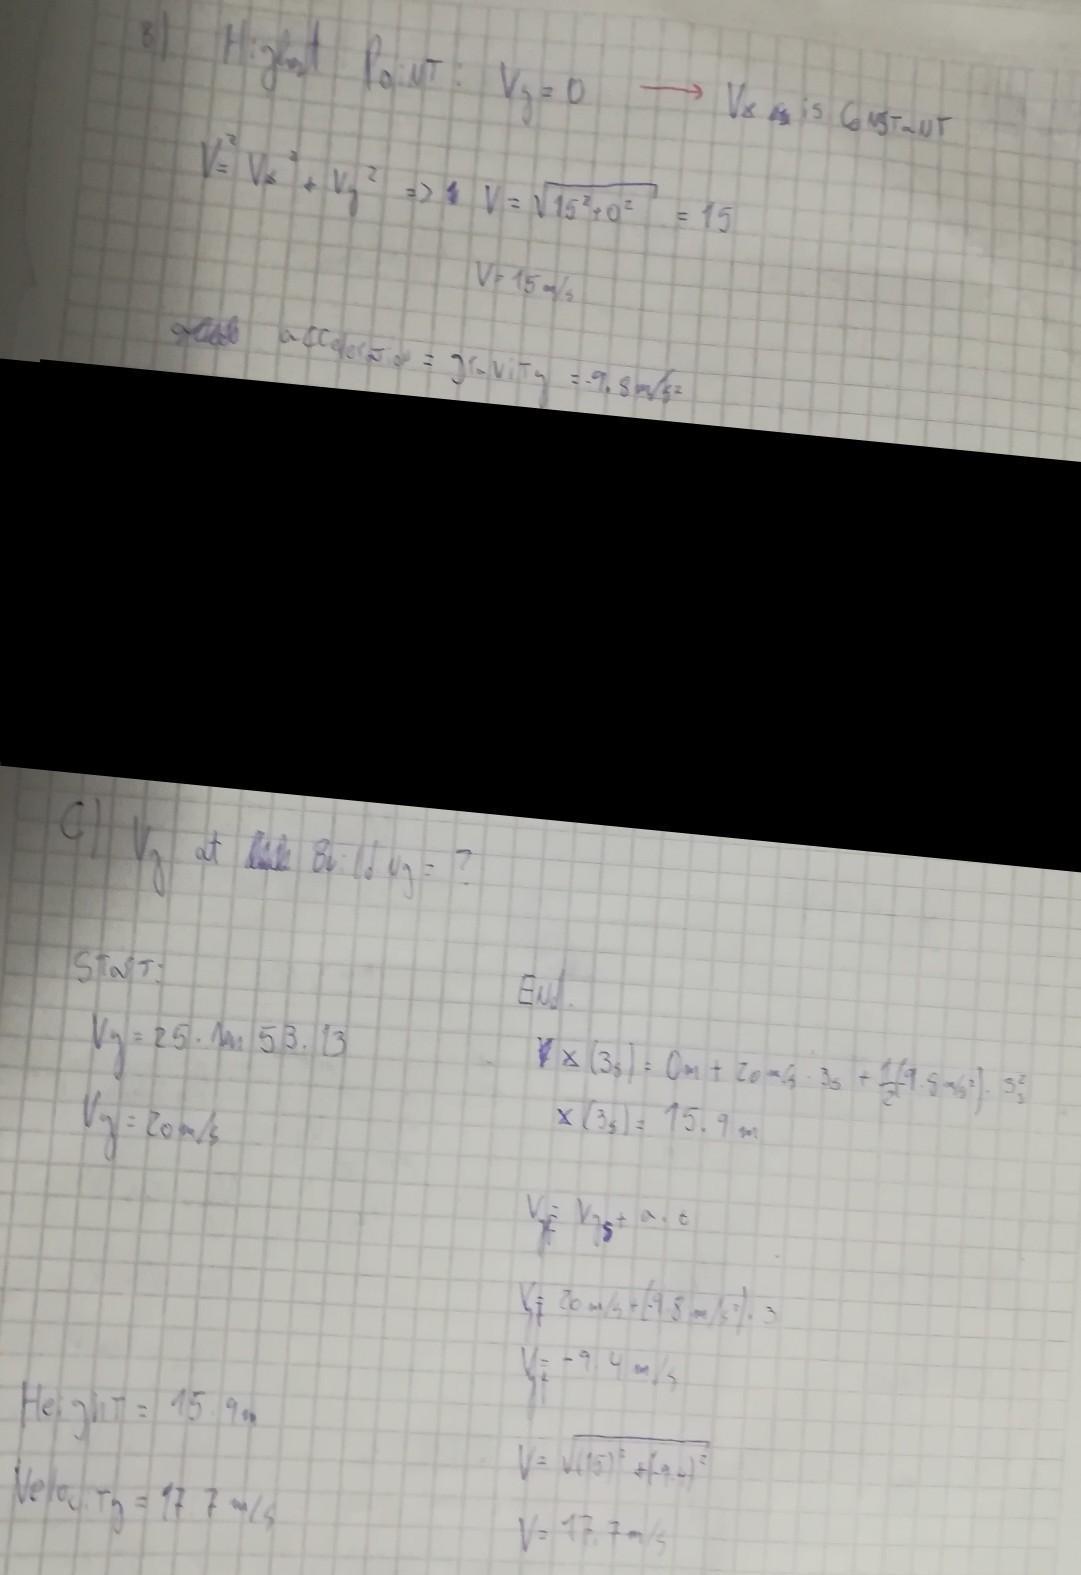 B) Highest Point: Vy = 0 → Vx is constant
V² = Vx² + Vy² => V = √15² + 0² = 15
V = 15 m/s
acceleration = gravity = -9.8 m/s²
C) Vy at Building = ?
Start:
Vy = 25 . sin 53.13
Vy = 20 m/s
End.
x (3s) = 0m + 20 m/s . 3s + 1/2 (-9.8 m/s²) . 3s²
x (3s) = 15.9 m
Vyf = Vys + a . t
Vyf = 20 m/s + (-9.8 m/s²) . 3
Vyf = -9.4 m/s
V = √(15)² + (-9.4)²
V = 17.7 m/s
Height = 15.9m
Velocity = 17.7 m/s